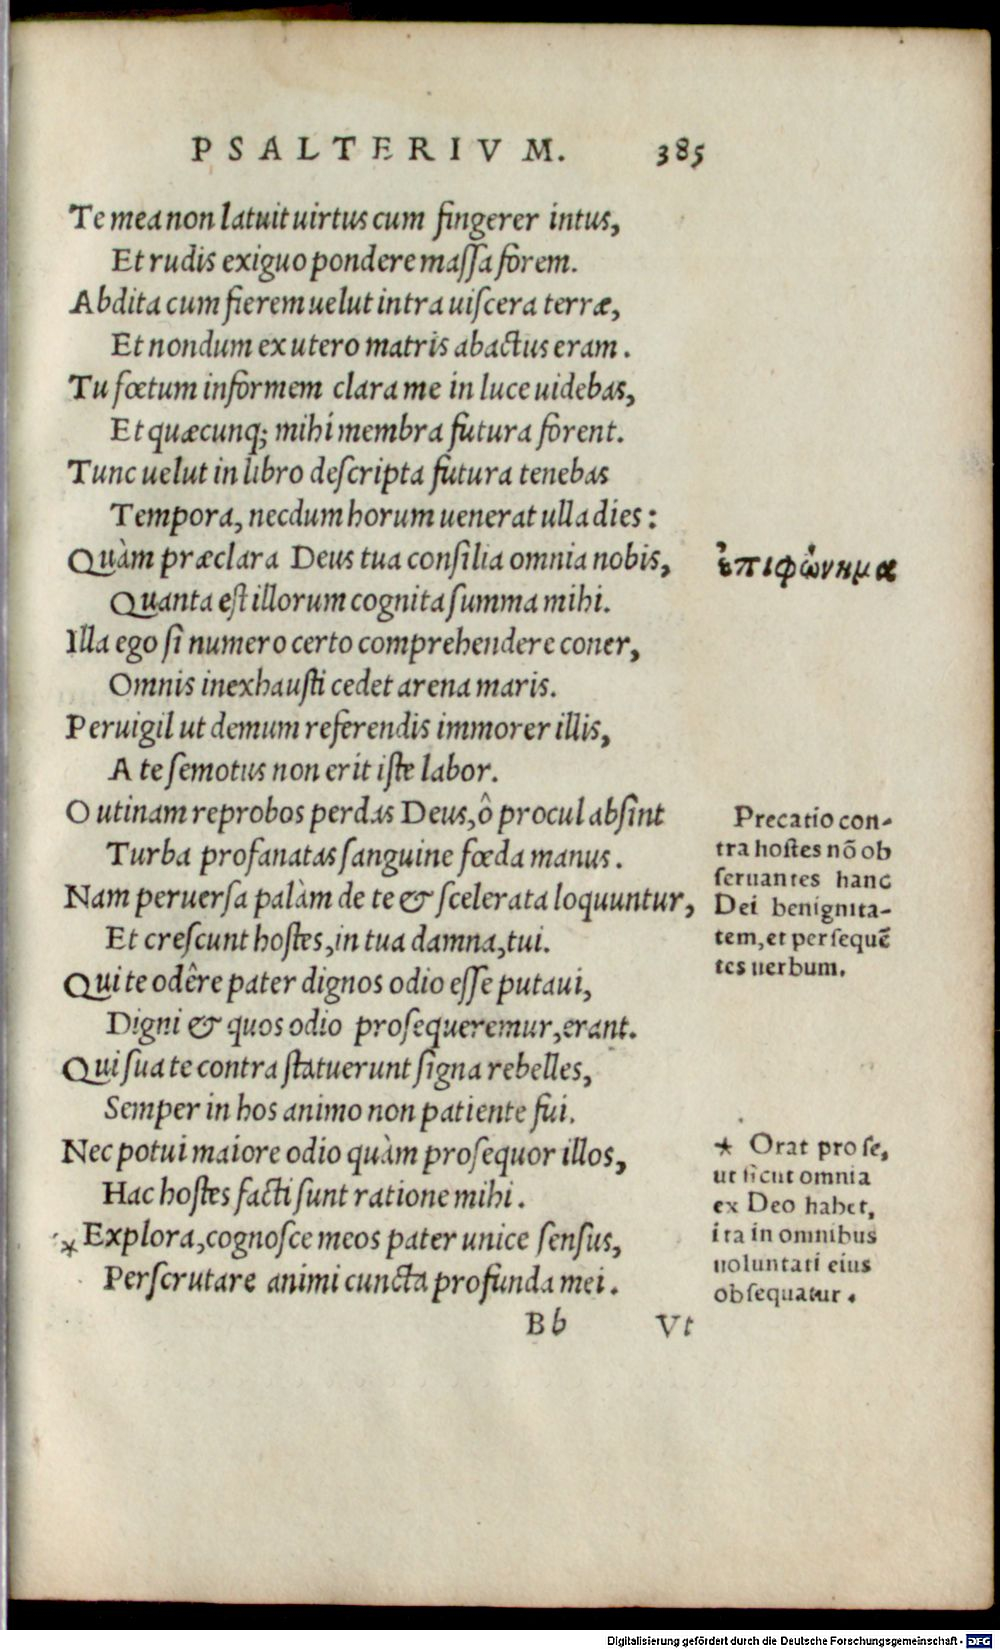 PSALTERIVM. 385
Te mea non latuit uirtus cum fingerer intus,
Et rudis exiguo pondere maſſa forem.
Abdita cum fierem uelut intra uiſcera terræ,
Et nondum ex utero matris abactus eram.
Tu fœtum informem clara me in luce uidebas,
Et quæcunq; mihi membra futura forent.
Tunc uelut in libro deſcripta futura tenebas
Tempora, necdum horum uenerat ulla dies:
Quàm præclara Deus tua conſilia omnia nobis,
ἐπιφώνημα
Quanta eſt illorum cognita ſumma mihi.
Illa ego ſi numero certo comprehendere coner,
Omnis inexhauſti cedet arena maris.
Peruigil ut demum referendis immorer illis,
A te ſemotus non erit iſte labor.
O utinam reprobos perdas Deus, ô procul abſint
Turba profanatas ſanguine fœda manus.
Nam peruerſa palàm de te & ſcelerata loquuntur,
Et creſcunt hoſtes, in tua damna, tui.
Qui te odêre pater dignos odio eſſe putaui,
Digni & quos odio proſequeremur, erant.
Qui ſua te contra ſtatuerunt ſigna rebelles,
Semper in hos animo non patiente fui.
Nec potui maiore odio quàm proſequor illos,
Hac hoſtes facti ſunt ratione mihi.
* Explora, cognoſce meos pater unice ſenſus,
Perſcrutare animi cuncta profunda mei.
Precatio con-
tra hoſtes nō ob
ſeruantes hanc
Dei benignita-
tem, et perſequē
tes uerbum.
* Orat pro ſe,
ut ſicut omnia
ex Deo habet,
ita in omnibus
uoluntati eius
obſequatur.
Bb Vt
Digitalisierung gefördert durch die Deutsche Forschungsgemeinschaft - DFG